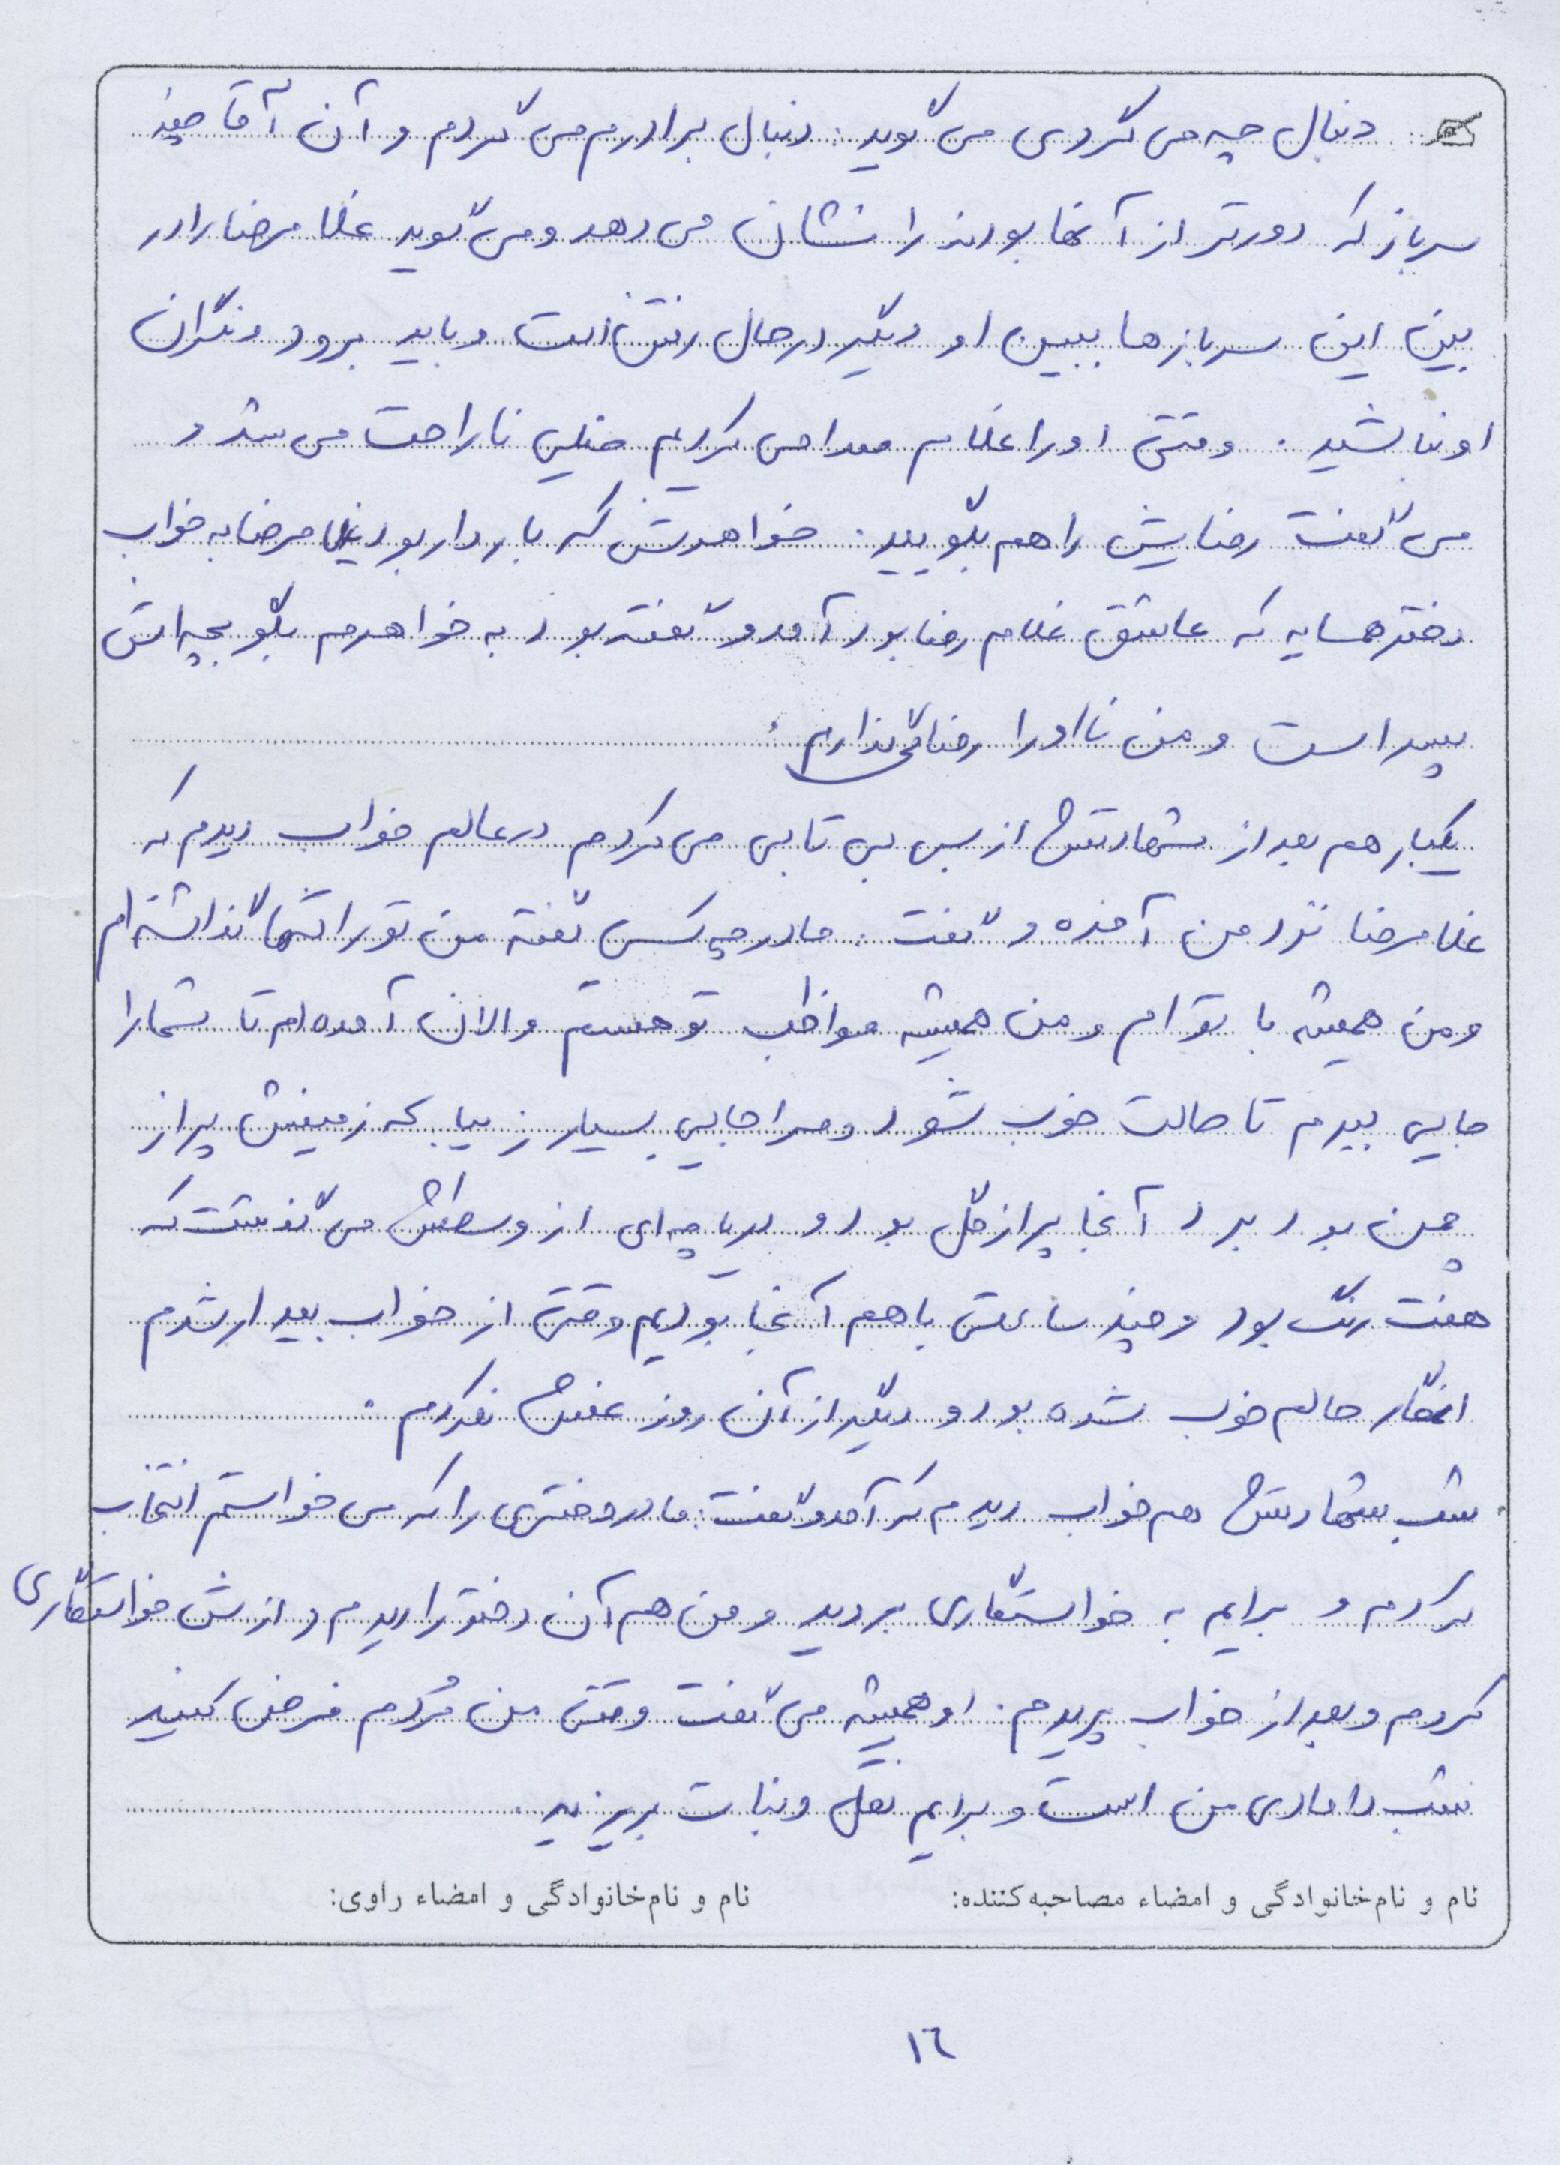 دنبال چه می گردی می گوید: دنبال برادرم می گردم و آن آقا چند
سرباز که دورتر از آنها بودند را نشان می دهد و می گوید غلامرضا را در
بین این سربازها ببین او دیگر در حال رفتن است و باید برود و نگران
او نباشید. وقتی او را غلام صدا می کردیم خیلی ناراحت می شد و
می گفت رضایش را هم بگویید. خواهرش که باردار بود غلامرضا به خواب
دختر همسایه که عاشق غلامرضا بود آمد و گفته بود به خواهرم بگو بچه اش
پسر است و من نام او را رضا می گذارم.
یکبار هم بعد از شهادتش از بس بی تابی می کردم در عالم خواب دیدم که
غلامرضا نزد من آمده و گفت: مادر چه کسی گفته من تو را تنها گذاشته ام
و من همیشه با تو ام و من همیشه مواظب تو هستم و الان آمده ام تا شما را
جایی ببرم تا حالت خوب شود و مرا جایی بسیار زیبا که زمینش پر از
چمن بود برد آنجا پر از گل بود و دریاچه ای از وسطش می گذشت که
هفت رنگ بود و چند ساعتی با هم آنجا بودیم وقتی از خواب بیدار شدم
انگار حالم خوب شده بود و دیگر از آن روز غش نکردم.
شب شهادتش هم خواب دیدم که آمد و گفت: مادر دختری را که می خواستم انتخاب
کردم و برایم به خواستگاری بروید و من هم آن دختر را دیدم و ازش خواستگاری
کردم و بعد از خواب پریدم. او همیشه می گفت وقتی من مُردم فرض کنید
شب دامادی من است و برایم نقل و نبات بریزید.
نام و نام‌خانوادگی و امضاء مصاحبه‌کننده: نام و نام‌خانوادگی و امضاء راوی:
١٦